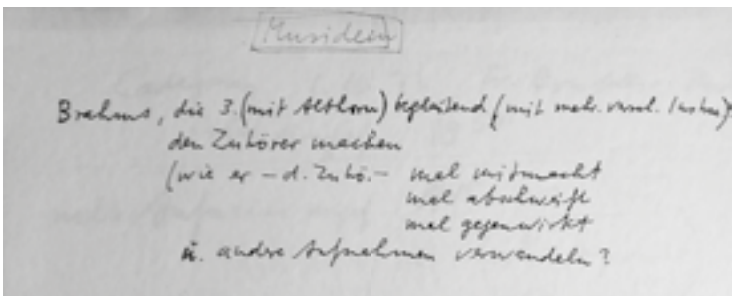 Musideen
Brahms, die 3. (mit Althorn) begleitend (mit mehr. versch. Instrn)
den Zuhörer machen
(wie er – d. Zuhö. – mal mitmacht
mal abschweift
mal gegenwirkt
u. andre Aufnahmen verwandeln?